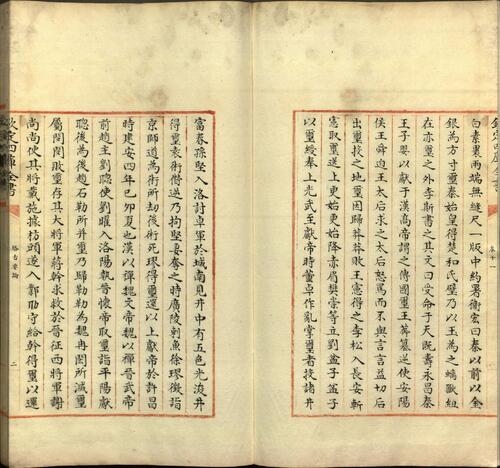 白素裹兩端無縫尺一版中約署衛宏曰秦以前以金
銀為方寸璽秦始皇得楚和氏璧乃以玉為之螭獸紐
在六璽之外李斯書之其文曰受命于天既壽永昌秦
王子嬰以獻于漢高帝謂之傳國璽王莽篡逆使安陽
侯王舜迫王太后求之太后怒罵而不與言言益切后
出璽投之地璽因歸莽莽敗王憲得之李松入長安斬
憲取璽送上更始更始降赤眉樊崇等立劉盆子盆子
以璽綬奉上光武至獻帝時董卓作亂掌璽者投諸井
富春孫堅入洛討卓軍於城南見井中有五色光浚井
得璽袁術僭逆乃拘堅妻奪之時廣陵刺魚徐璆徵詣
京師道為術所劫後術死璆得璽還以上獻帝於許昌
時建安四年己卯夏也漢以禪魏文帝魏以禪晉武帝
前趙主劉聰使劉曜入洛陽執晉懷帝取璽詣平陽獻
聰後為後趙石勒所并璽乃歸勒勒為魏冉閔所滅璽
屬閔閔敗璽存其大將軍蔣幹求救於晉征西將軍謝
尚尚使其將戴施據枋頭遂入鄴助守給幹得璽以還
欽定四庫全書
略古要論
二